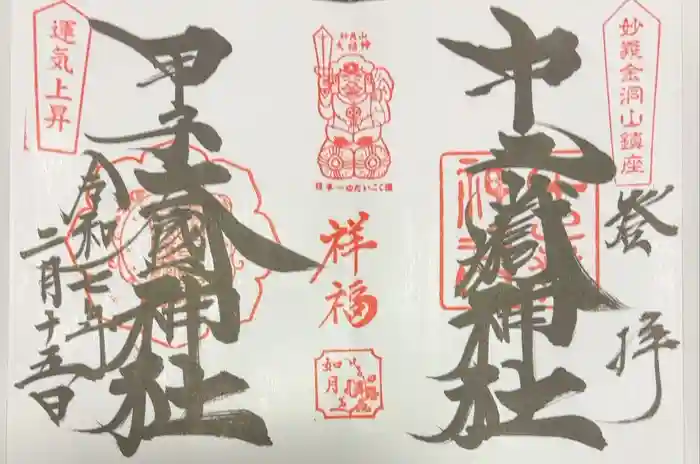 妙義金洞山鎮座
登拝
中之嶽神社
日本一のだいこく様
祥福
如月
運気上昇
甲子大國神社
令和七年
二月十五日